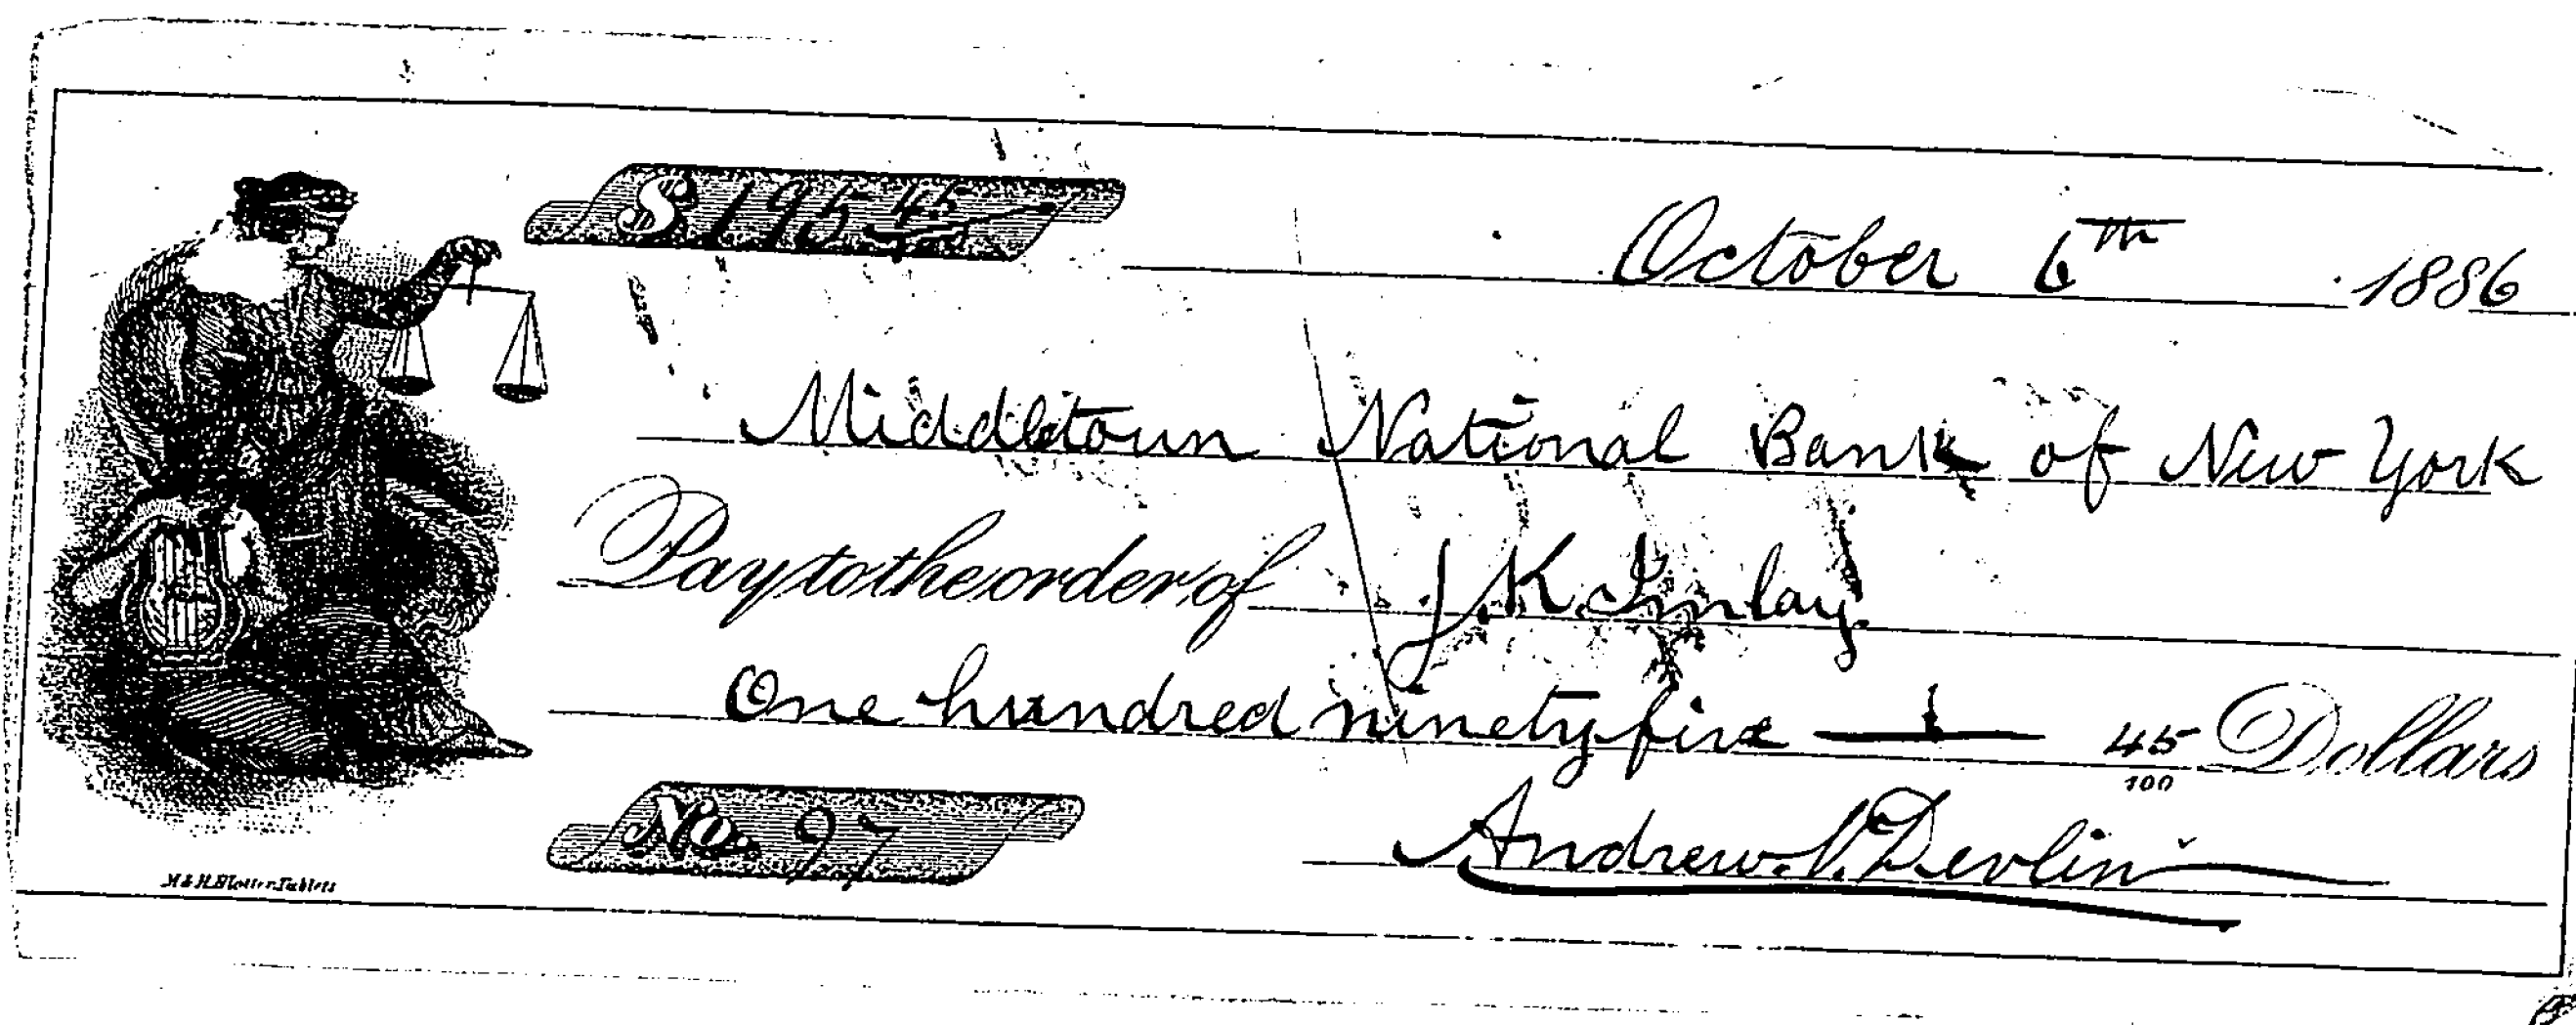 $195 45
October 6th 1886
Middletown National Bank of New York
Pay to the order of J. K. Imlay.
One hundred ninety five 45/100 Dollars
No. 97
Andrew. V. Devlin
M & H. Blotter Tablets